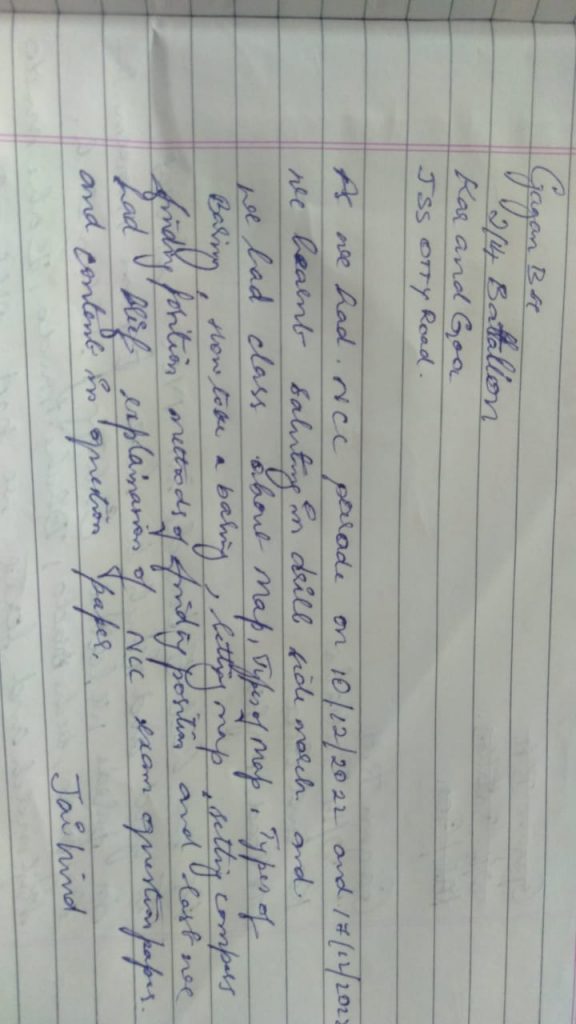 Gagan B M
2/4 Battallion
Kar and Goa
JSS OTTY Road.
As we had. NCC parade on 10/12/2022 and 17/12/2022
we learnt saluting in drill side march and
we had class about map, Types of map, Types of
Baring, How take a baring, Setting map, setting compass
finding position methods of finding position and last we
had brief explaination of NCC exam question paper.
and content in question paper.
Jai hind